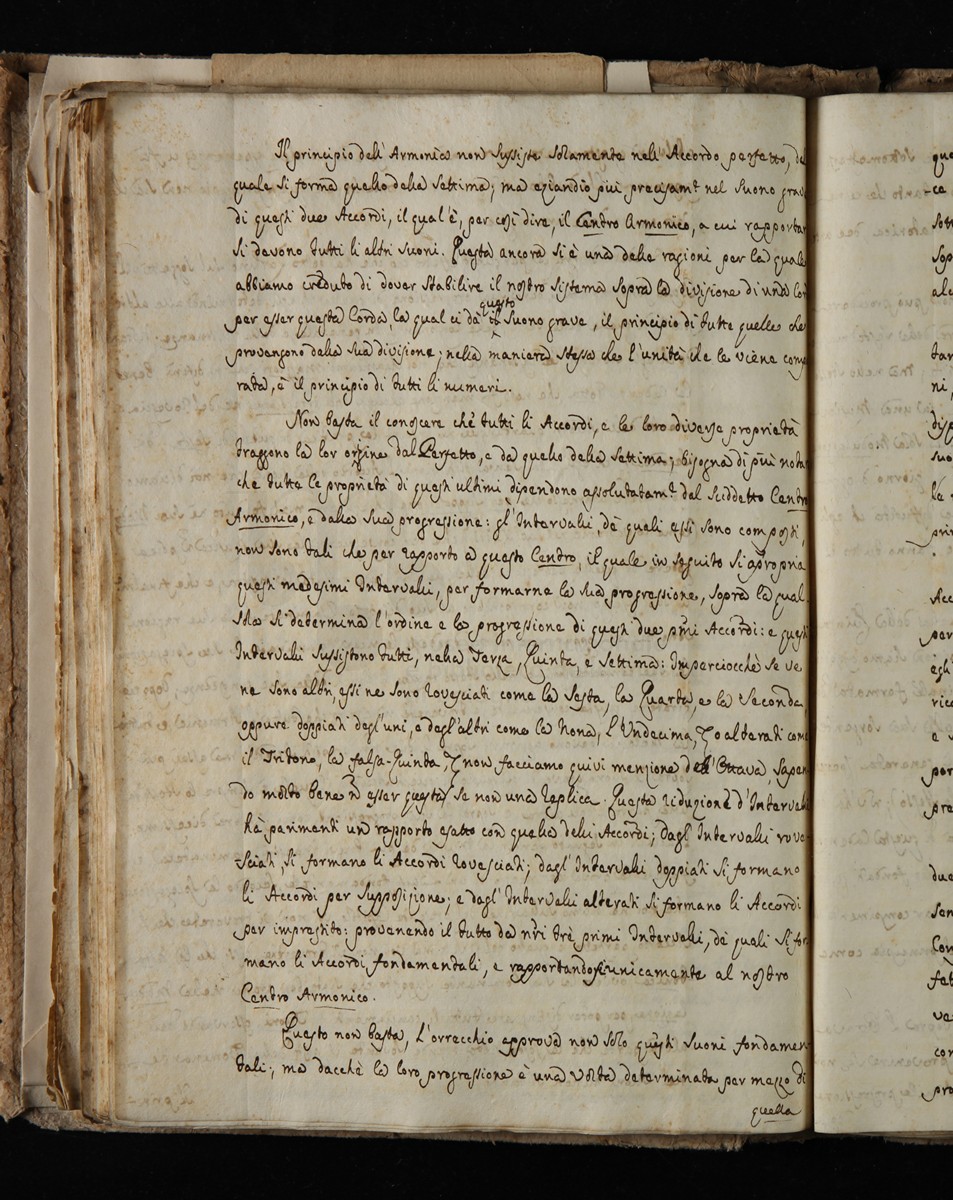 Il principio dell'Armonica non sussiste solamente nell'Accordo perfetto, del
quale si forma quello della settima; ma eziandio più precisamte nel suono grave
di questi due Accordi, il qual'è, per così dire, il Centro Armonico, a cui rapportar
si devono tutti li altri suoni. Questa ancora si è una delle ragioni per la quale
abbiamo creduto di dover stabilire il nostro sistema sopra la divisione di una Cor
questo
per esser questa Corda, la qual ci dà il suono grave, il principio di tutte quelle che
provengono dalla sua divisione; nella maniera stessa che l'unità che le viene comp
rata, è il principio di tutti li numeri.
Non basta il conoscere chè tutti li Accordi, e le loro diverse proprietà
traggono la lor origine dal Perfetto, e da quello della settima; bisogna di più notar
che tutte le proprietà di questi ultimi dipendono assolutatamte dal sciddetto Centro
Armonico, e dalla sua progressione: gl'Intervalli, de quali essi sono composti,
non sono tali che per rapporto a questo Centro, il quale in seguito si apropria
questi medesimi Intervalli, per formarne la sua progressione, sopra la qual
sola si determina l'ordine e la progressione di questi due pmi Accordi: e questi
Intervalli sussistono tutti, nella Terza, Quinta, e settima: Imperciocchè se ve
ne sono altri, essi ne sono rovesciati come la sesta, la Quarta, e la seconda,
oppure doppiati degl'uni, e degl'altri come la Nona, l'Undecima, o alterati come
il Tritono, la falsa-Quinta, non facciamo quivi menzione dell'Ottava sapen
do molto bene ñ esser questa se non una replica. Questa riduzione d'Intervalli
hà parimenti un rapporto esatto con quella delli Accordi; dagl'Intervalli rove
-sciati, si formano li Accordi rovesciati; dagl'Intervalli doppiati si formano
li Accordi per supposizione; e dagl'Intervalli alterati si formano li Accordi
per imprestito: provenendo il tutto da nři trè primi Intervalli, dè quali si for
mano li Accordi fondamentali, e rapportandosi unicamente al nostro
Centro Armonico.
Questo non basta, l'orrecchio approva non solo questi suoni fondamen
tali; ma dacchè la loro progressione è una volta determinata per mezzo di
quella